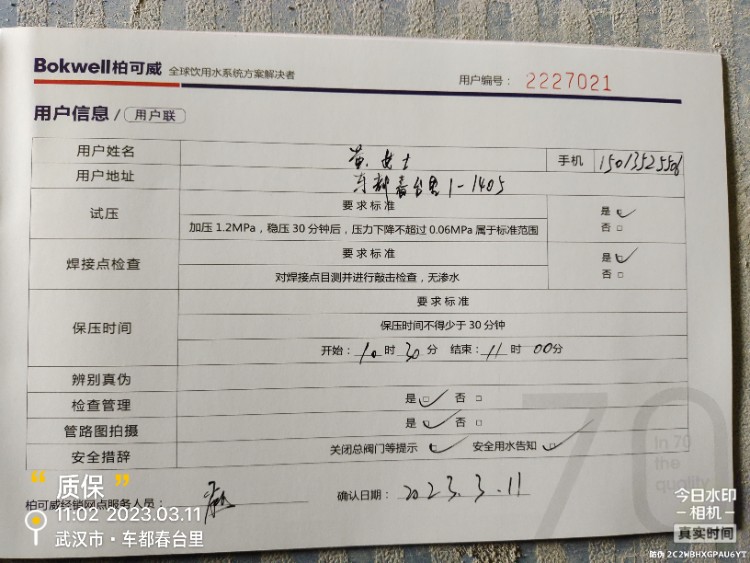 Bokwell柏可威 全球饮用水系统方案解决者 用户编号： 2227021
用户信息 / 用户联
用户姓名 黄女士 手机
用户地址 车都春台里1-1405
试压 要求标准 是
加压1.2MPa，稳压30分钟后，压力下降不超过0.06MPa属于标准范围 否
焊接点检查 要求标准 是
对焊接点目测并进行敲击检查，无渗水 否
保压时间 要求标准
保压时间不得少于30分钟
开始：10时30分 结束：11时00分
辨别真伪
检查管理 是 否
管路图拍摄 是 否
安全措辞 关闭总阀门等提示 安全用水告知
柏可威经销网点服务人员： 确认日期：2023.3.11
70
In 70
the
quality
“质保”
11:02 2023.03.11
武汉市·车都春台里
今日水印
相机
真实时间
防伪 2C2WBHXGPAU6YT